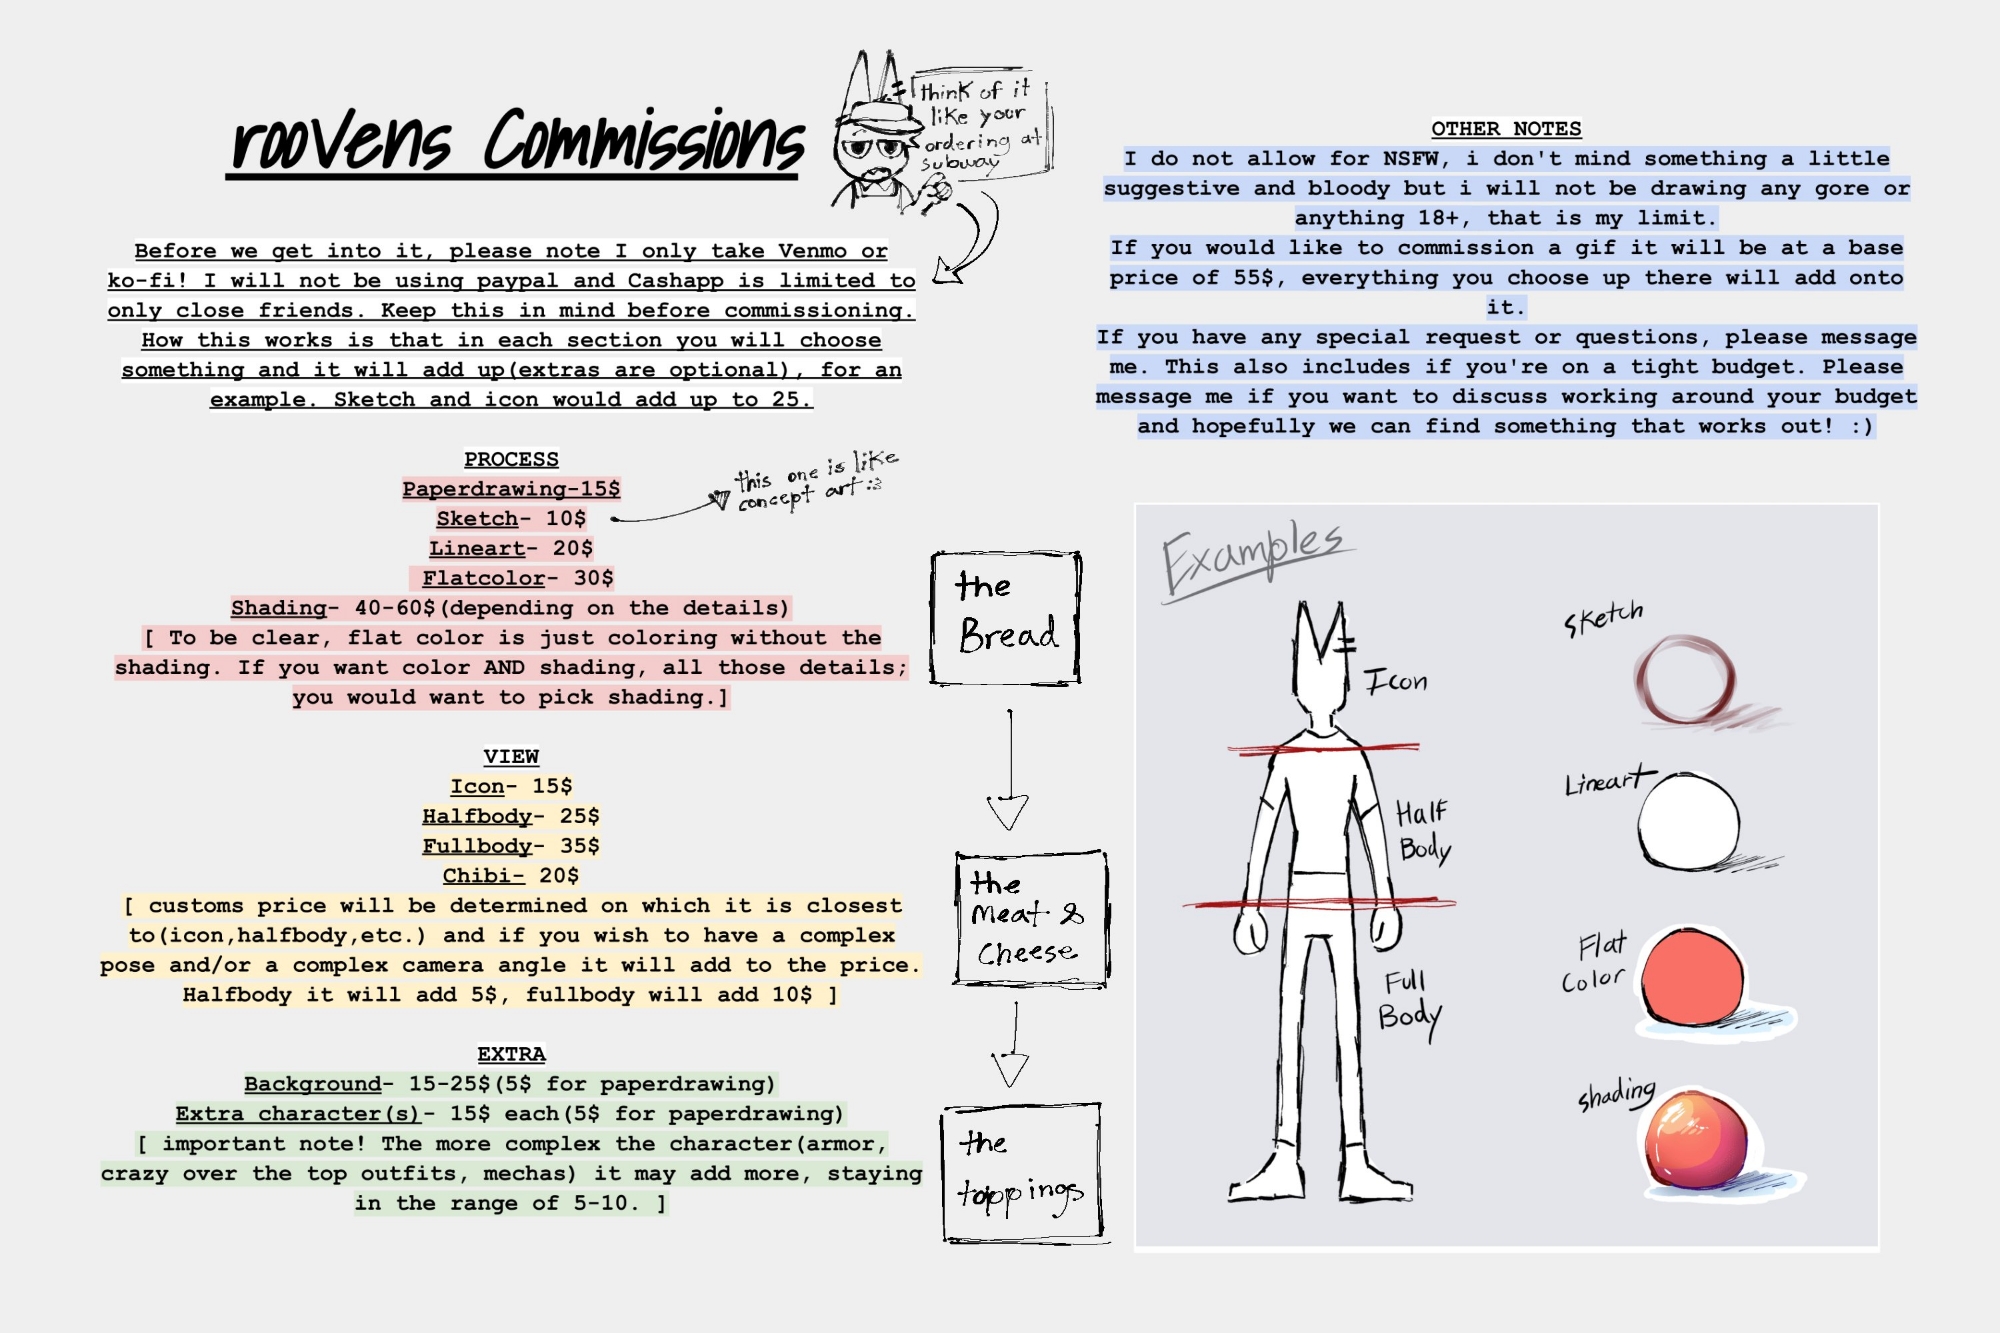 rooVens Commissions
think of it
like your
ordering at
subway
Before we get into it, please note I only take Venmo or
ko-fi! I will not be using paypal and Cashapp is limited to
only close friends. Keep this in mind before commissioning.
How this works is that in each section you will choose
something and it will add up(extras are optional), for an
example. Sketch and icon would add up to 25.
PROCESS
Paperdrawing-15$
Sketch- 10$
this one is like
concept art :3
Lineart- 20$
Flatcolor- 30$
Shading- 40-60$(depending on the details)
[ To be clear, flat color is just coloring without the
shading. If you want color AND shading, all those details;
you would want to pick shading.]
the
Bread
VIEW
Icon- 15$
Halfbody- 25$
Fullbody- 35$
Chibi- 20$
[ customs price will be determined on which it is closest
to(icon,halfbody,etc.) and if you wish to have a complex
pose and/or a complex camera angle it will add to the price.
Halfbody it will add 5$, fullbody will add 10$ ]
the
Meat &
Cheese
EXTRA
Background- 15-25$(5$ for paperdrawing)
Extra character(s)- 15$ each(5$ for paperdrawing)
[ important note! The more complex the character(armor,
crazy over the top outfits, mechas) it may add more, staying
in the range of 5-10. ]
the
toppings
OTHER NOTES
I do not allow for NSFW, i don't mind something a little
suggestive and bloody but i will not be drawing any gore or
anything 18+, that is my limit.
If you would like to commission a gif it will be at a base
price of 55$, everything you choose up there will add onto
it.
If you have any special request or questions, please message
me. This also includes if you're on a tight budget. Please
message me if you want to discuss working around your budget
and hopefully we can find something that works out! :)
Examples
Icon
Half
Body
Full
Body
Sketch
Lineart
Flat
Color
shading